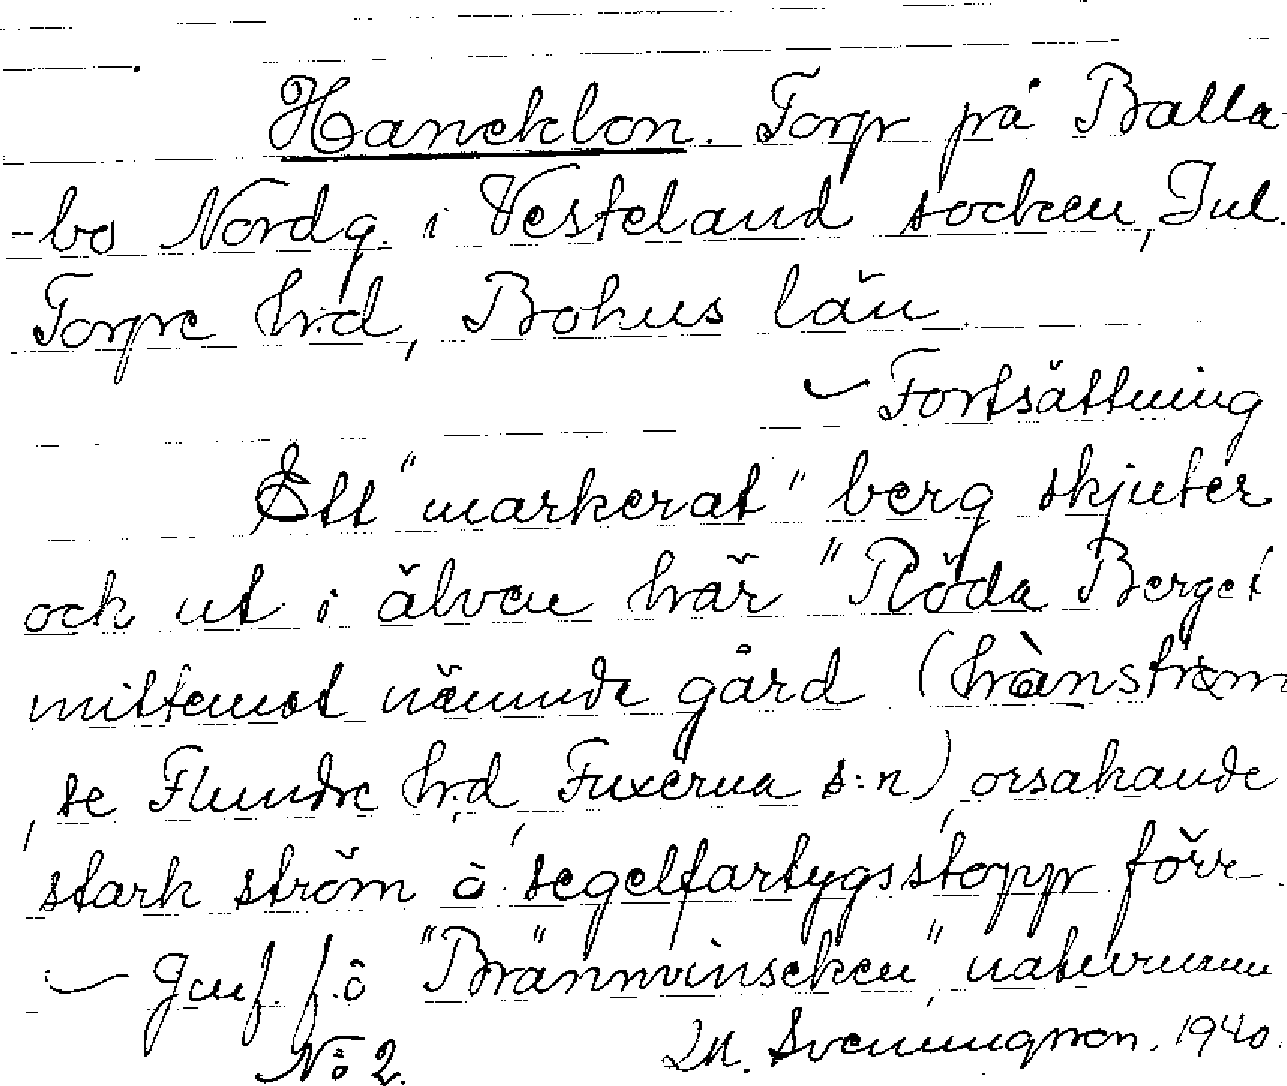 Haneklon. Torp på Balla
-bo Nordg. i Vesteland socken, Inl.
Torpe hrd, Bohus län
– Fortsättning
Ett "markerat" berg skjuter
ock ut i älven här "Röda Berget
mittemot nämnde gård (hrànström
, se Flundre hrd, Fuxerna s:n), orsakande
stark ström o segelfartygsstopp förr.
– Jmf. f. ö "Brännvinseken", naturminne
No 2. M. Svenungsson. 1940.